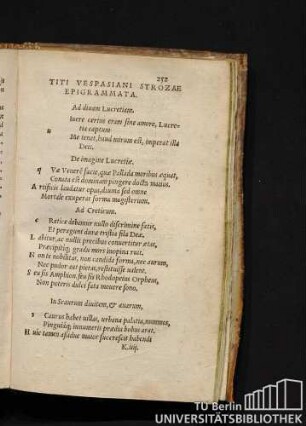 252
TITI VESPASIANI STROZAE
EPIGRAMMATA.
Ad divam Lucretiam.
certus eram sine amore, Lucre-
tia captum
Me tenet, haud mirum est, imperat illa
Deo.
De imagine Lucretiæ.
q Væ Venerē facie, quæ Pallada moribus equat,
Conata est dominam pingere docta manus.
A rtificis laudatur opus, diuina sed omne
Mortale exuperat forma magisterium.
Ad Creticum.
c Retica debemur nullo discrimine fatis,
Et peragunt dura tristia fila Deæ.
L abitur, ac nullis precibus conuertitur ætas,
Præcipitiq; gradu mors inopina ruit.
N on te nobilitas, non candida forma, nec aurum,
Nec pudor aut pietas, restituisse ualent.
S eu sis Amphion, seu sis Rhodopeius Orpheus,
Non poteris dulci fata mouere sono.
In Scaurum diuitem, & auarum.
s Caurus habet uillas, urbana palatia, nummos,
Pinguiaq; innumeris prædia bobus arat.
H uic tamen assidue maior succrescit habendi
K iiij.
TU Berlin
UNIVERSITÄTSBIBLIOTHEK